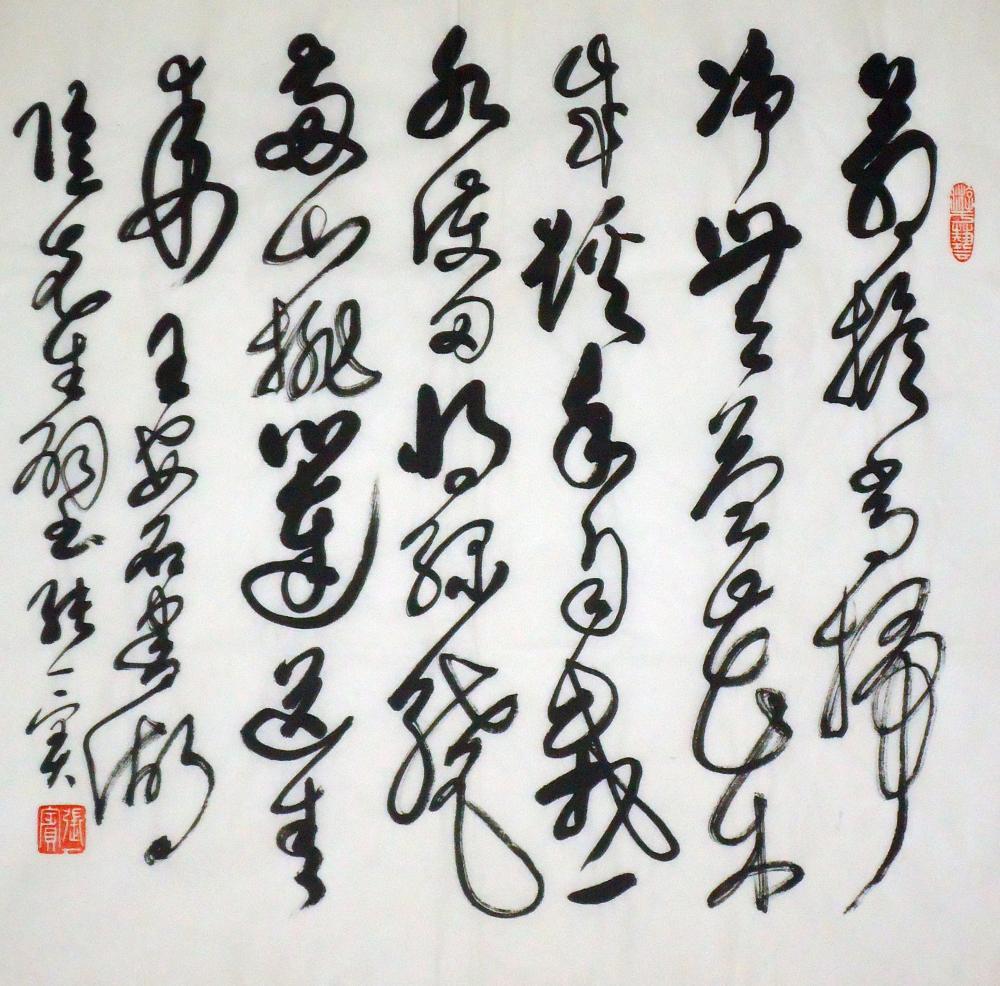 茅檐常掃
淨無苔花木
成蹊手自栽一
水護田將綠繞
兩山排闥送青
來 王安石書湖
陰先生 書 張一